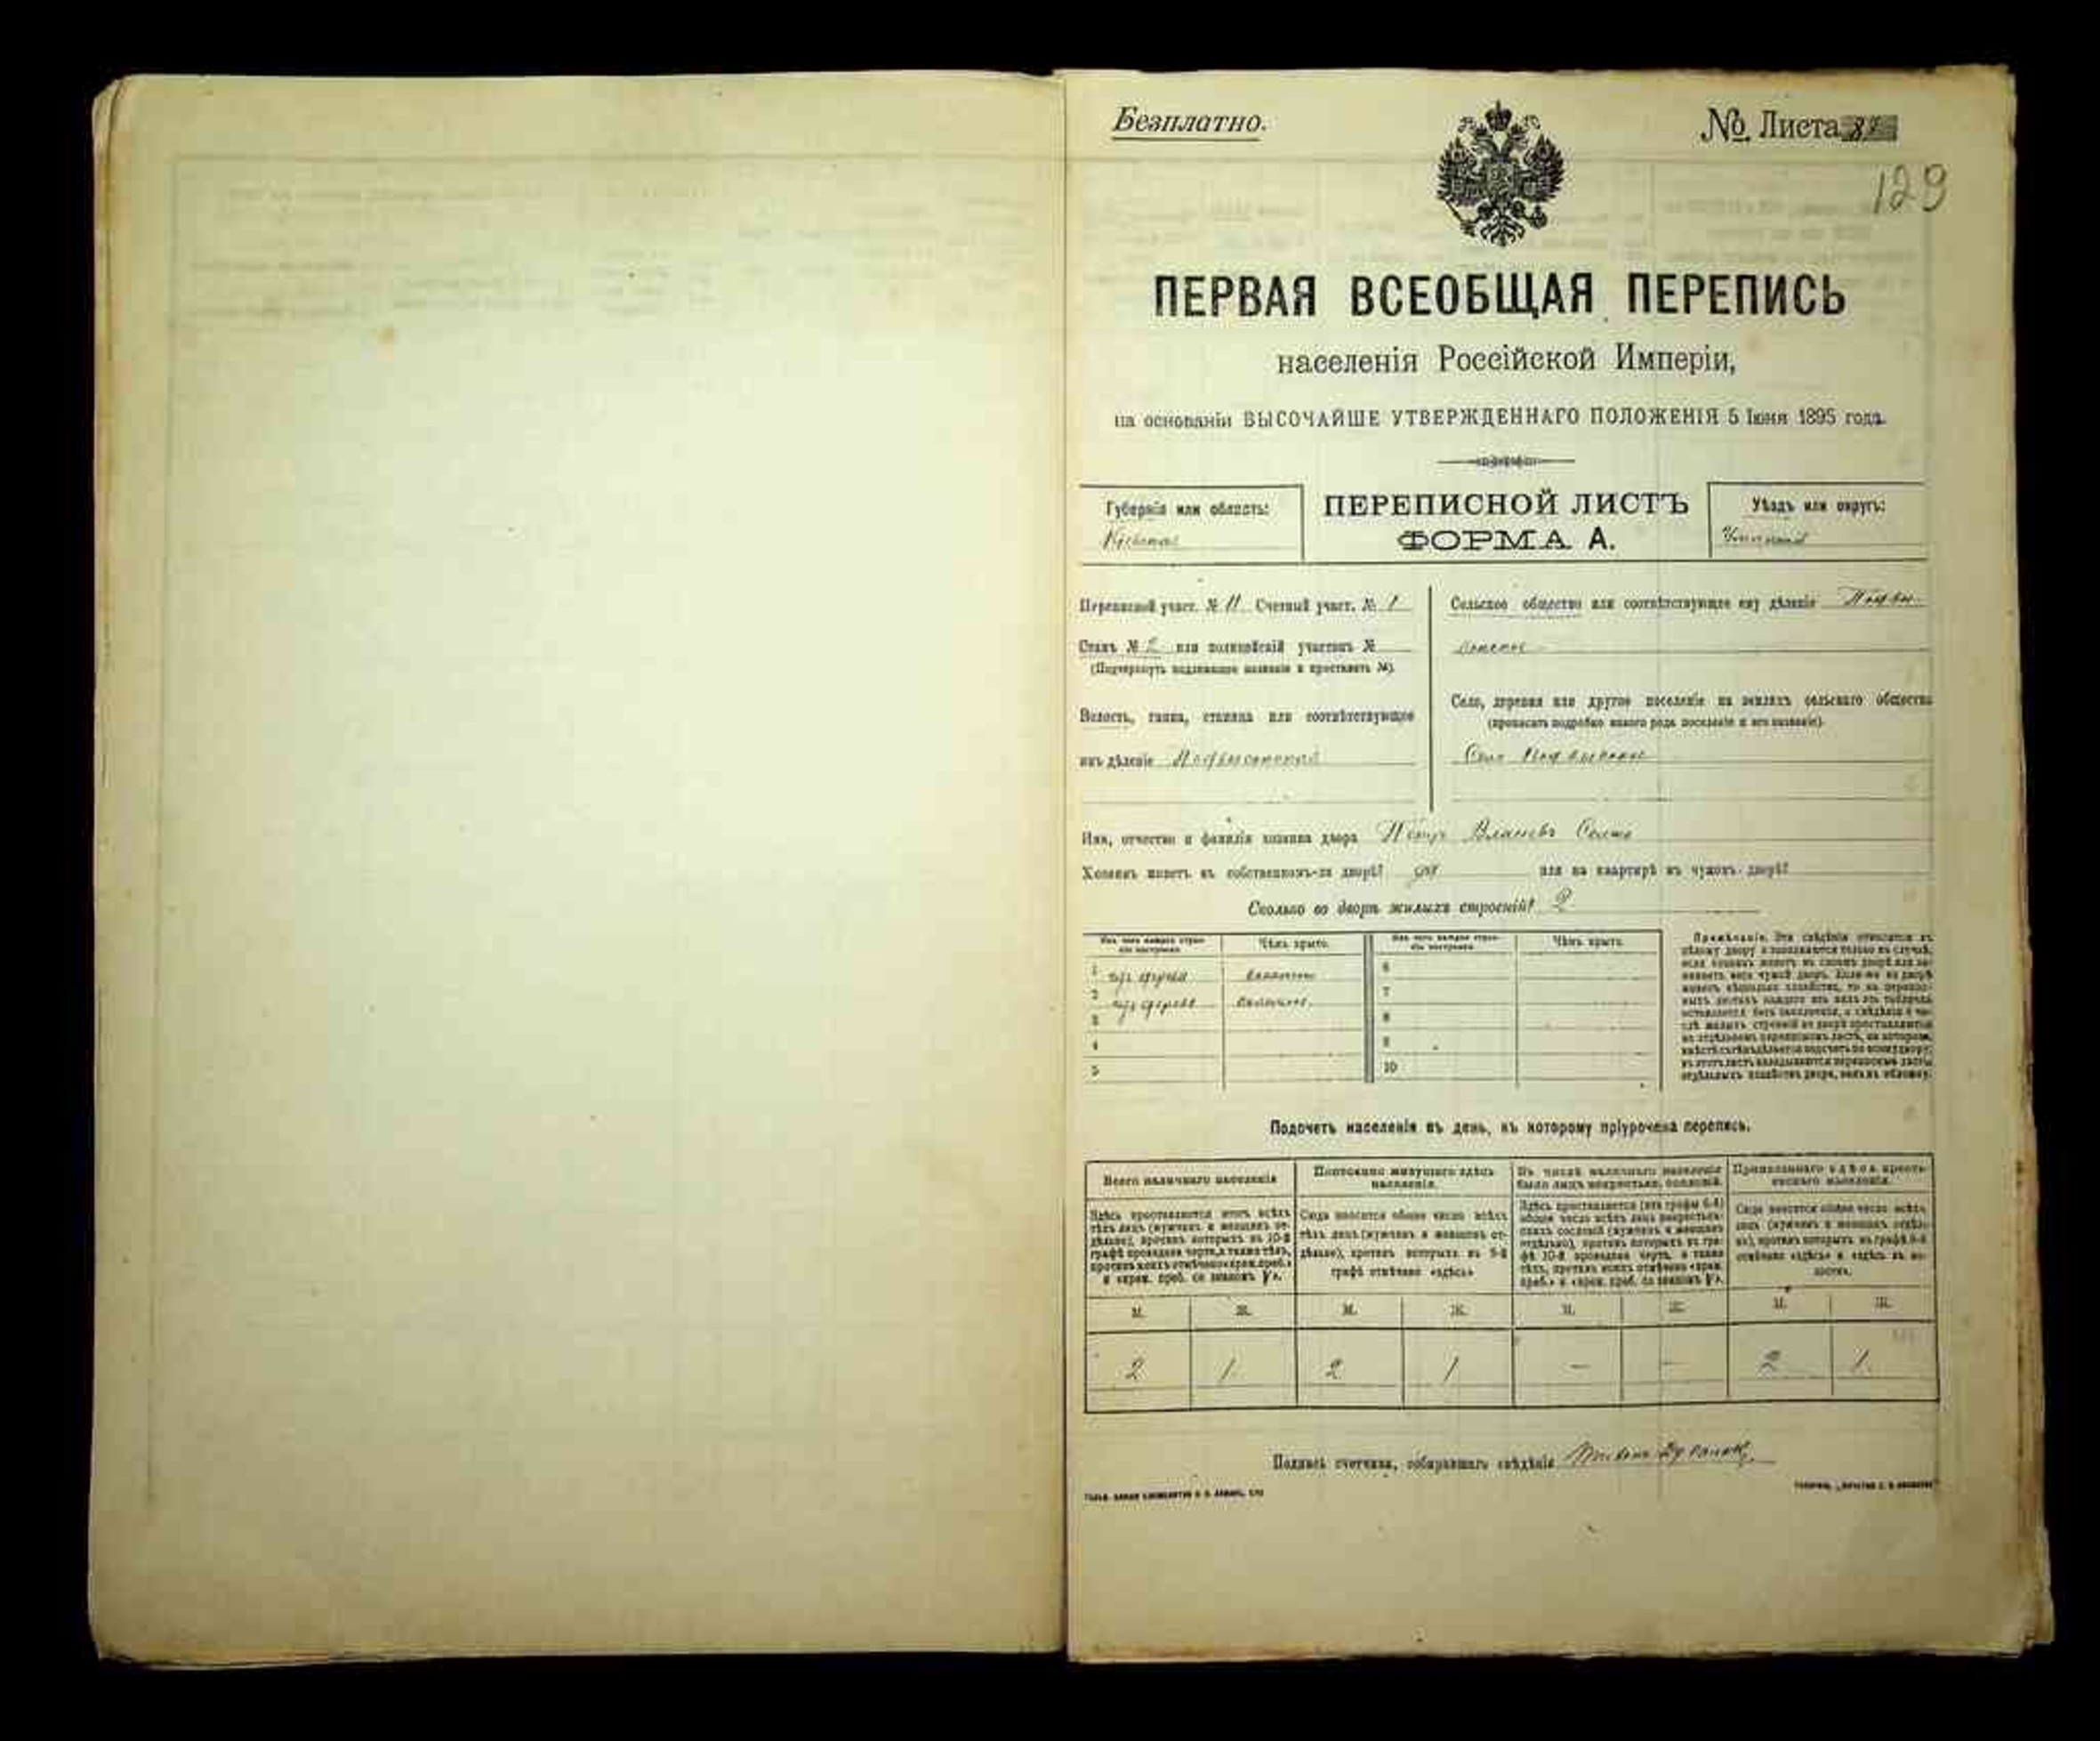 Безплатно.
№ Листа
129
ПЕРВАЯ ВСЕОБЩАЯ ПЕРЕПИСЬ
населенія Россійской Имперіи,
на основаніи ВЫСОЧАЙШЕ УТВЕРЖДЕННАГО ПОЛОЖЕНІЯ 5 Іюня 1895 года.
Губернія или область:
Кіевская
ПЕРЕПИСНОЙ ЛИСТЪ
ФОРМА А.
Уѣздъ или округъ:
Уманскій
Переписной участ. № 11 Счетный участ. № 1
Станъ № 2 или полицейскій участокъ №
(Подчеркнуть надлежащее названіе и проставить №)
Волость, гмина, станица или соотвѣтствующее
имъ дѣленіе Подвысоцкой
Сельское общество или соотвѣтствующее ему дѣленіе Подвы-
Село, деревня или другое поселеніе на земляхъ сельскаго общества
(прописать подробно какого рода поселеніе и его названіе).
Село Подвысокое
Имя, отчество и фамилія хозяина двора Петръ
Хозяинъ живетъ въ собственномъ-ли дворѣ? да или на квартирѣ въ чужомъ дворѣ?
Сколько во дворѣ жилыхъ строеній? 2
Изъ чего каждое строе-
ніе построено.
Чѣмъ крыто.
Изъ чего каждое строе-
ніе построено.
Чѣмъ крыто.
1 изъ дерева соломою
2 изъ дерева соломою
3
4
5
6
7
8
9
10
Примѣчаніе. Эти свѣдѣнія относятся къ
цѣлому двору и заполняются только въ случаѣ,
если хозяинъ живетъ въ своемъ дворѣ или за-
нимаетъ весь чужой дворъ. Если-же во дворѣ
живетъ нѣсколько хозяйствъ, то на перепис-
ныхъ листахъ каждаго изъ нихъ эта таблица
оставляется безъ заполненія, а свѣдѣнія о чи-
слѣ жилыхъ строеній во дворѣ проставляются
на отдѣльномъ переписномъ листѣ, на которомъ
вмѣстѣ съ тѣмъ дѣлается подсчетъ по всему двору;
въ этотъ листъ вкладываются переписные листы
отдѣльныхъ хозяйствъ двора, какъ въ обложку.
Подсчетъ населенія въ день, къ которому пріурочена перепись.
Всего наличнаго населенія
Здѣсь проставляются итогъ всѣхъ
тѣхъ лицъ (мужчинъ и женщинъ от-
дѣльно), противъ которыхъ въ 10-й
графѣ проведена черта, а также тѣхъ,
противъ коихъ отмѣчено «врем. преб.»
и «врем. преб. со знакомъ V».
Постоянно живущаго здѣсь
населенія.
Сюда вносится общее число всѣхъ
тѣхъ лицъ (мужчинъ и женщинъ от-
дѣльно), противъ которыхъ въ 9-й
графѣ отмѣчено «здѣсь»
Въ числѣ наличнаго населенія
было лицъ некрестьян. сословій.
Здѣсь проставляется (изъ графы 6-й)
общее число всѣхъ лицъ некрестьян-
скихъ сословій (мужчинъ и женщинъ
отдѣльно), противъ которыхъ въ гра-
фѣ 10-й проведена черта, а также
тѣхъ, противъ коихъ отмѣчено «врем.
преб.» и «врем. преб. со знакомъ V».
Приписаннаго здѣсь кресть-
янскаго населенія.
Сюда вносится общее число всѣхъ
лицъ (мужчинъ и женщинъ отдѣль-
но), противъ которыхъ въ графѣ 8-й
отмѣчено «здѣсь» и «здѣсь въ во-
лости».
М. Ж. М. Ж. М. Ж. М. Ж.
2 1 2 1 — — 2 1
Подпись счетчика, собиравшаго свѣдѣнія